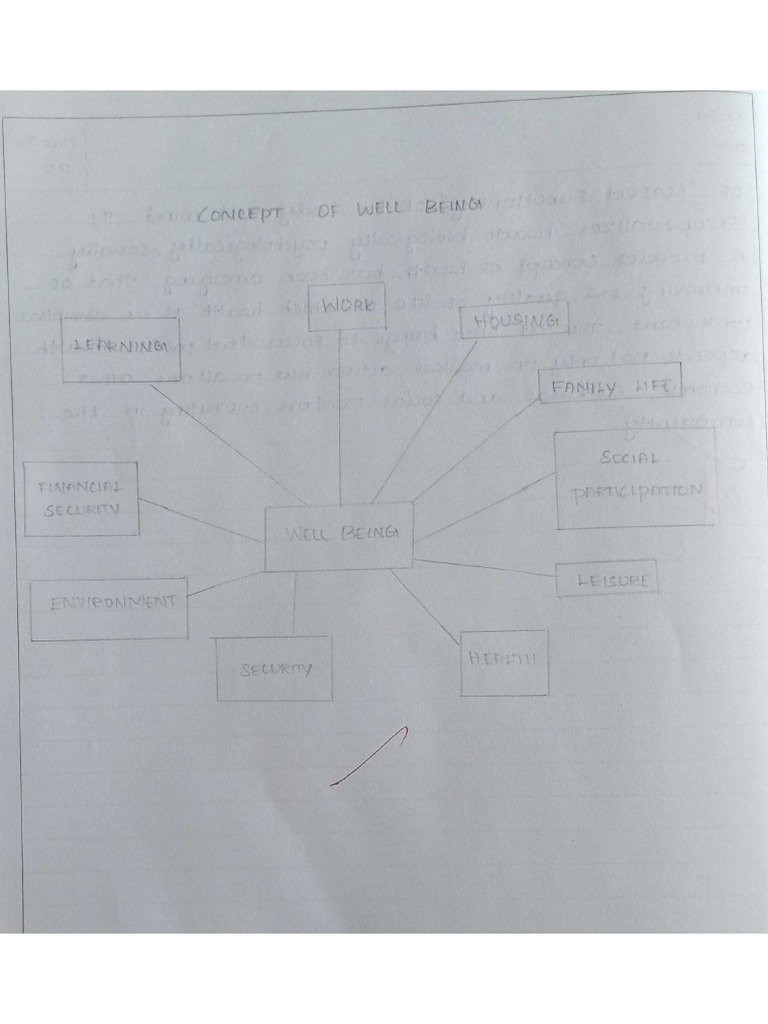 CONCEPT OF WELL BEING
WORK
HOUSING
LEARNING
FAMILY LIFE
SOCIAL
PARTICIPATION
FINANCIAL
SECURITY
WELL BEING
LEISURE
ENVIRONMENT
SECURITY
HEALTH